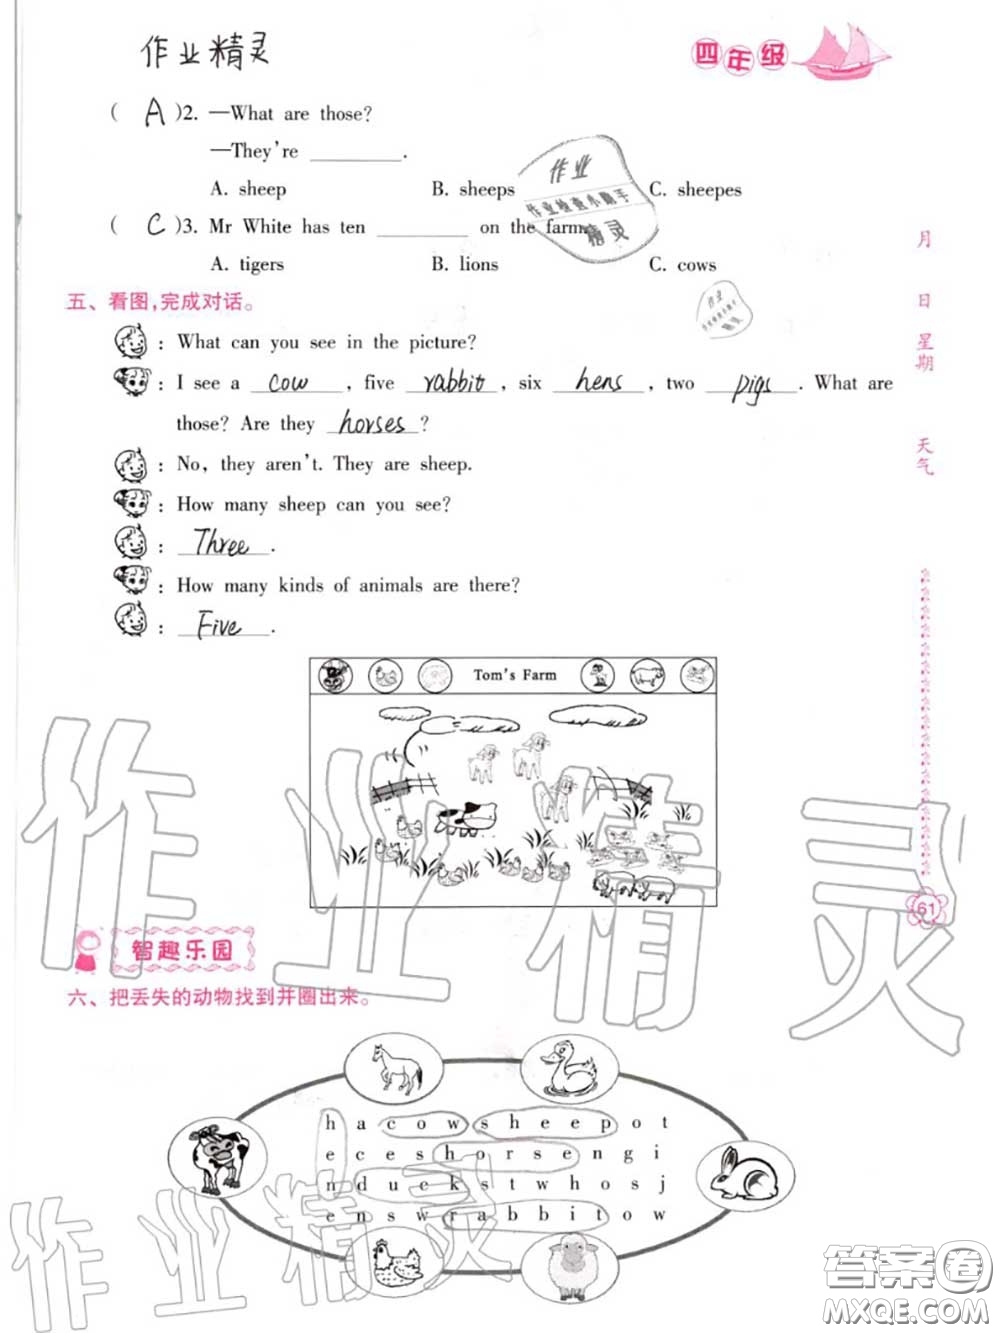 作业精灵
四年级
( A )2. —What are those?
—They're ________.
A. sheep B. sheeps C. sheepes
( C )3. Mr White has ten ________ on the farm.
A. tigers B. lions C. cows
五、看图,完成对话。
: What can you see in the picture?
: I see a cow , five rabbit , six hens , two pigs . What are
those? Are they horses ?
: No, they aren't. They are sheep.
: How many sheep can you see?
: Three .
: How many kinds of animals are there?
: Five .
月
日
星期
天气
作业
作业检查小助手
精灵
作业
Tom's Farm
61
智趣乐园
六、把丢失的动物找到并圈出来。
h a c o w s h e e p o t
e c e s h o r s e n g i
n d u c k s t w h o s j
e n s w r a b b i t o w
作业精灵
作业精灵
答案圈
MXQE.COM